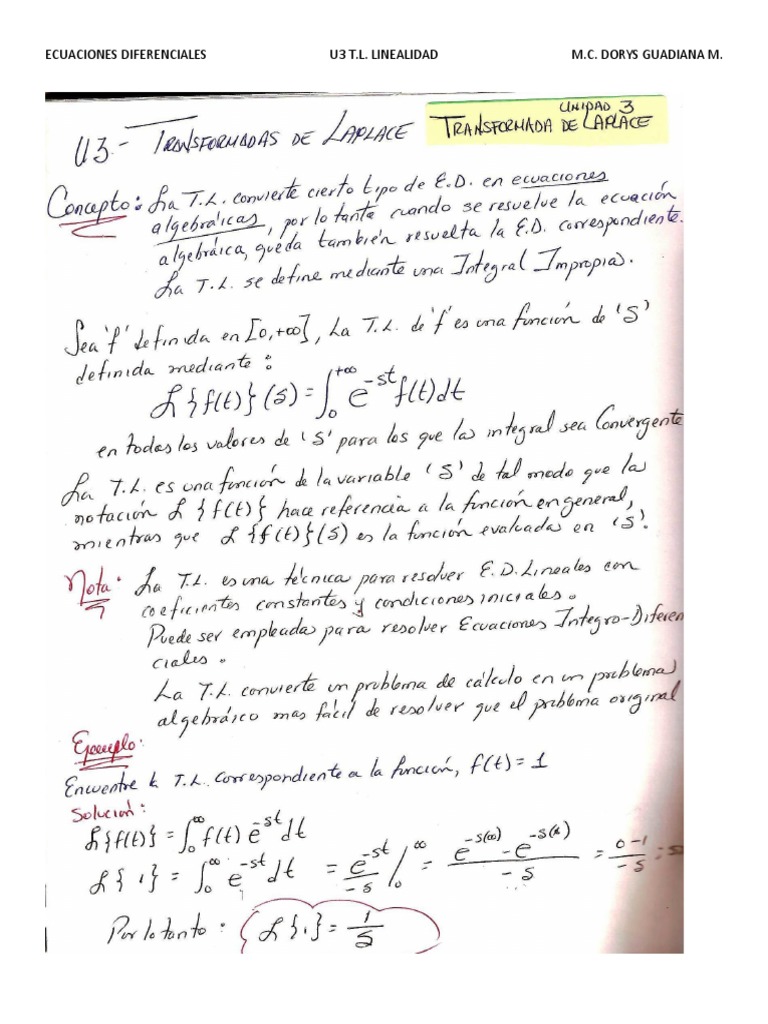 ECUACIONES DIFERENCIALES U3 T.L. LINEALIDAD M.C. DORYS GUADIANA M.
UNIDAD 3
U3.- TRANSFORMADAS DE LAPLACE TRANSFORMADA DE LAPLACE
Concepto: La T.L. convierte cierto tipo de E.D. en ecuaciones
algebraícas, por lo tanto cuando se resuelve la ecuación
algebráica, queda también resuelta la E.D. correspondiente.
La T.L. se define mediante una Integral Impropia.
Sea 'f' definida en [0,+∞], La T.L. de 'f' es una función de 'S'
definida mediante:
ℒ{f(t)}(s) = ∫₀^+∞ e^-st f(t)dt
en todos los valores de 'S' para los que la integral sea Convergente
La T.L. es una función de la variable 'S' de tal modo que la
notación ℒ{f(t)} hace referencia a la función en general,
mientras que ℒ{f(t)}(s) es la función evaluada en 'S'.
Nota: La T.L. es una técnica para resolver E.D. Lineales con
coeficientes constantes y condiciones iniciales.
Puede ser empleada para resolver Ecuaciones Integro-Diferen
ciales.
La T.L. convierte un problema de cálculo en un problema
algebráico mas fácil de resolver que el problema original
Ejemplo:
Encuentre la T.L. correspondiente a la función, f(t) = 1
Solución:
ℒ{f(t)} = ∫₀^∞ f(t) e^-st dt
ℒ{1} = ∫₀^∞ e^-st dt = e^-st/-s |₀^∞ = (e^-s(∞) - e^-s(0))/-s = (0-1)/-s =
Por lo tanto: ℒ{1} = 1/S